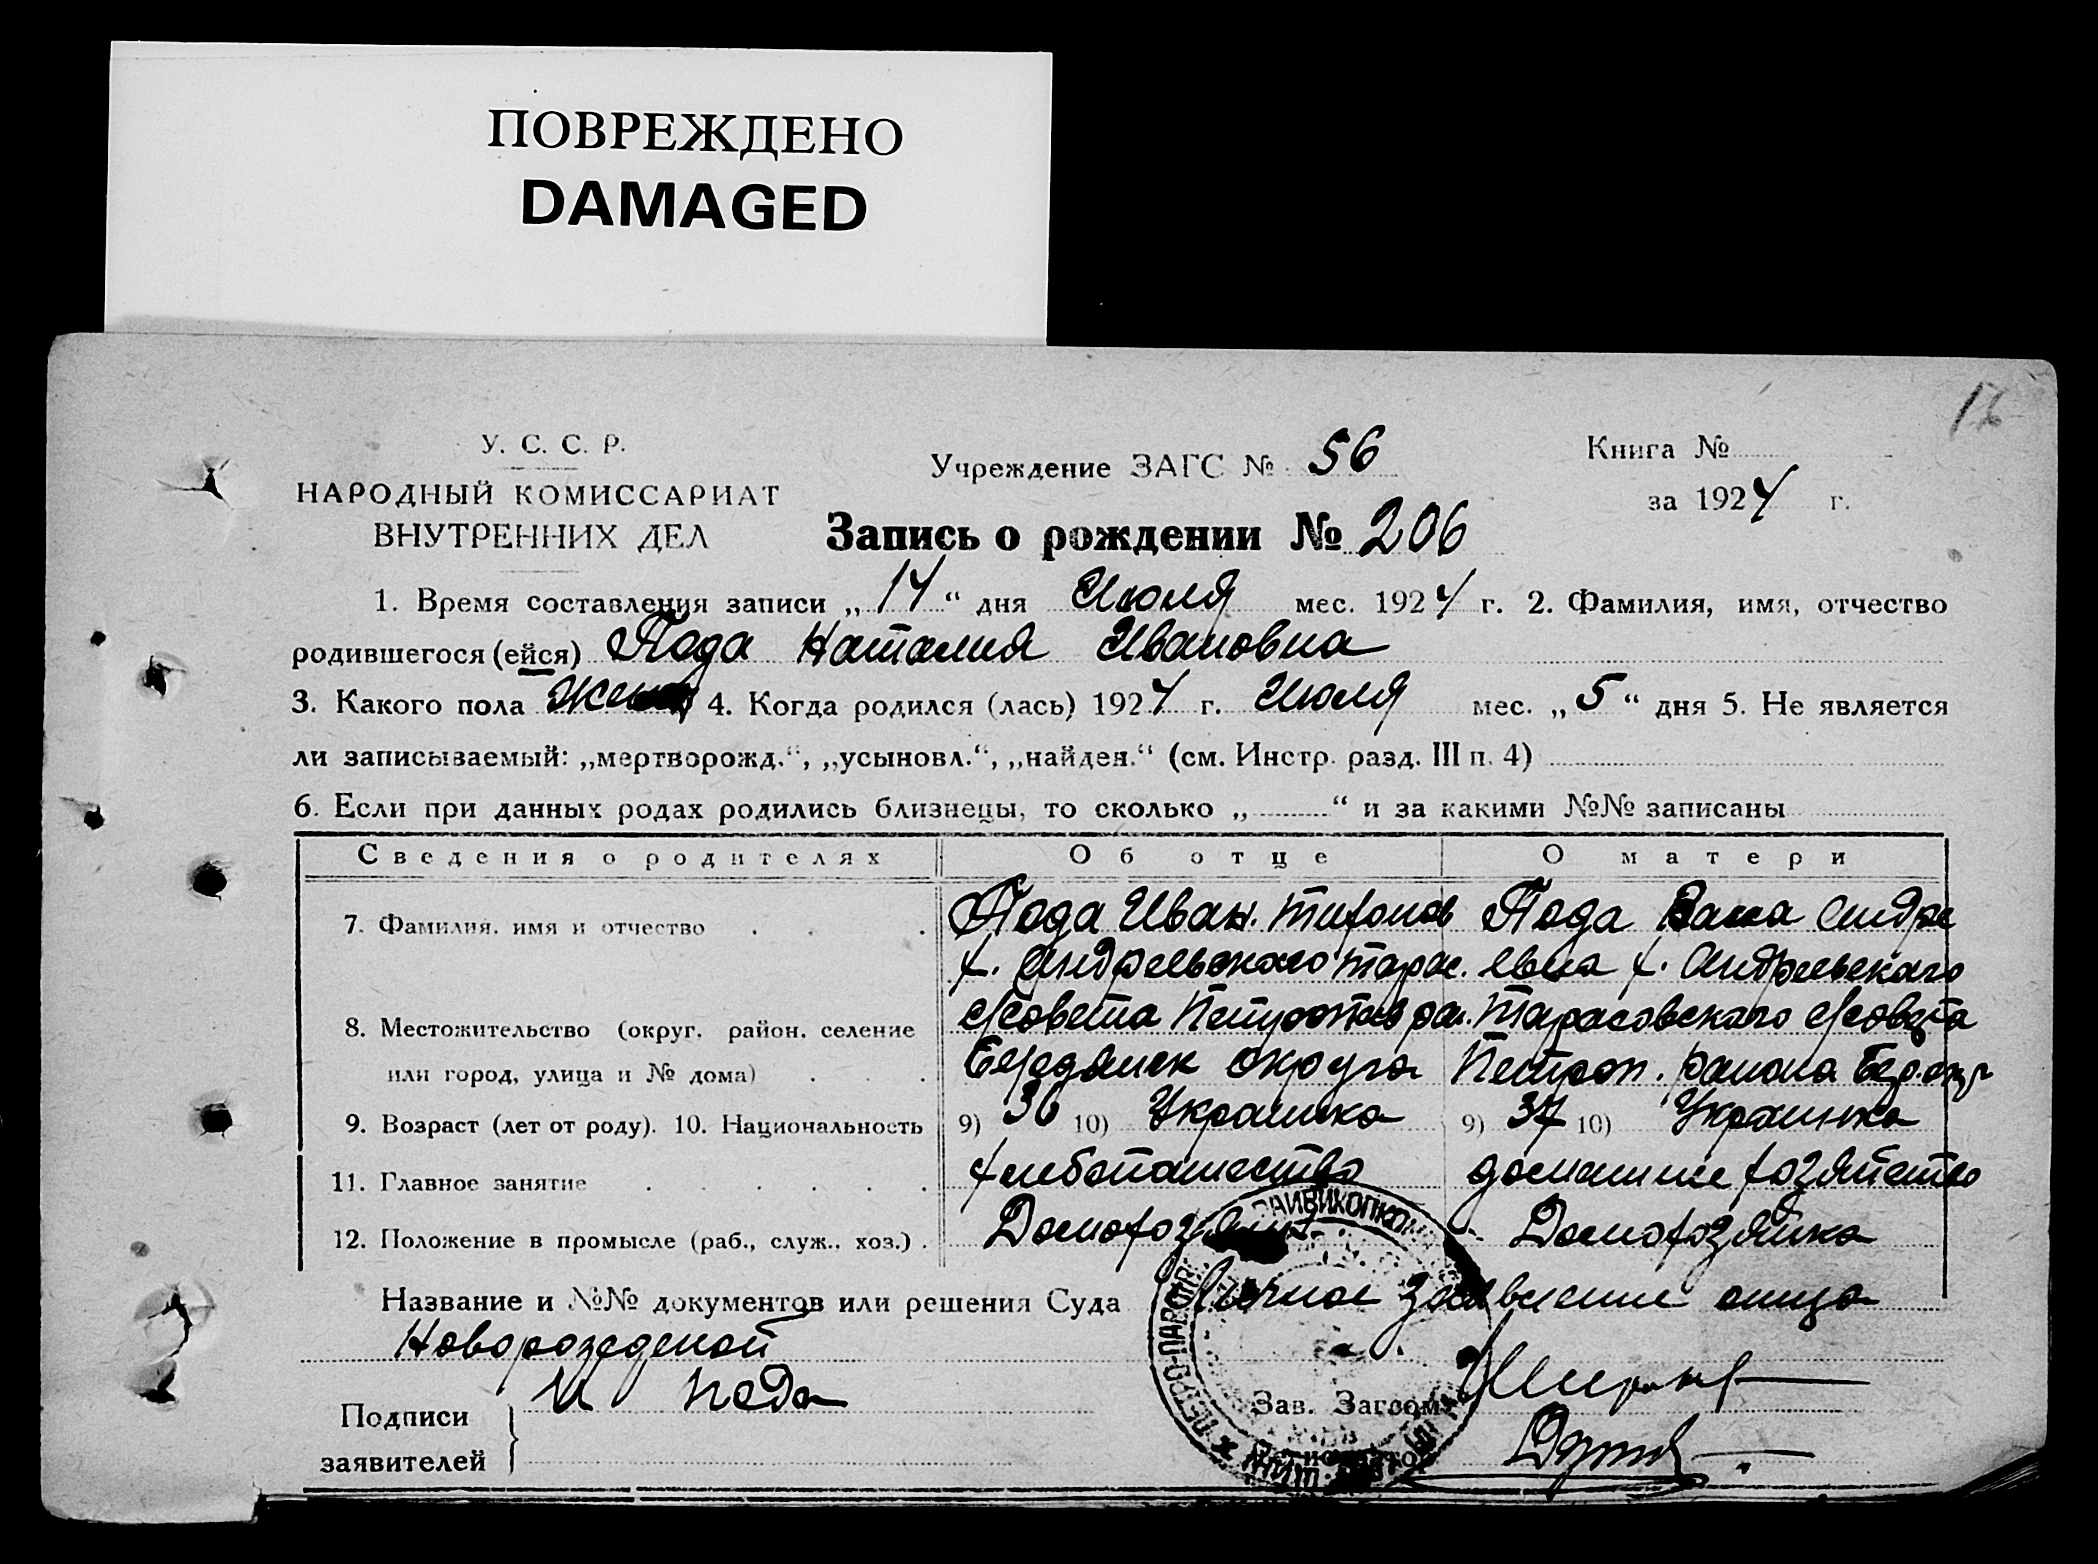 ПОВРЕЖДЕНО
DAMAGED
16
У. С. С. Р.
НАРОДНЫЙ КОМИССАРИАТ
ВНУТРЕННИХ ДЕЛ
Учреждение ЗАГС № 56
Книга №
за 1924 г.
Запись о рождении № 206
1. Время составления записи „14“ дня Июля мес. 1924 г. 2. Фамилия, имя, отчество
родившегося (ейся) Пода Наталия Ивановна
3. Какого пола Жен 4. Когда родился (лась) 1924 г. Июля мес. „5“ дня 5. Не является
ли записываемый: „мертворожд.“, „усыновл.“, „найден.“ (см. Инстр. разд. III п. 4)
6. Если при данных родах родились близнецы, то сколько „ “ и за какими №№ записаны
Сведения о родителях Об отце О матери
7. Фамилия, имя и отчество Пода Иван. Тихонов Пода Андре
х. Андреевского Тарас. евна х. Андреевскаго
с/совета района Тарасовскаго с/совета
8. Местожительство (округ, район, селение
или город, улица и № дома) Бердянск округа Петроп. района Бер. окр
9. Возраст (лет от роду). 10. Национальность 9) 36 10) Украинка 9) 37 10) Украинка
11. Главное занятие хлебопашество домашнее хозяйство
12. Положение в промысле (раб., служ., хоз.) Домохозяин Домохозяйка
Название и №№ документов или решения Суда Личное заявление отца
Новорожденой
Подписи
заявителей И Пода
Зав. Загсом
Регистратор